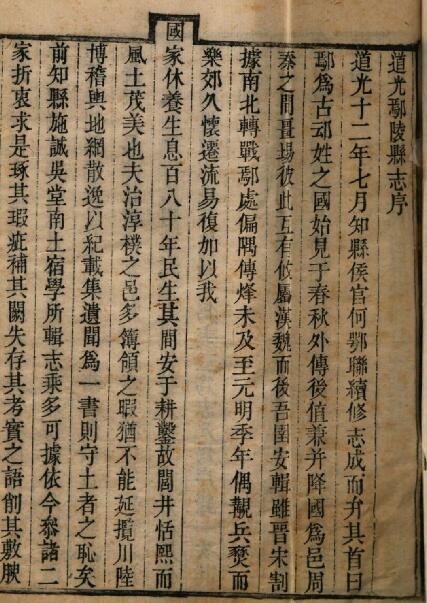 道光鄢陵縣志序
道光十二年七月知縣侯官何鄂聯續修志成而弁其首曰
鄢爲古䢵姓之國始見于春秋外傳後值兼并降國爲邑周
秦之間畺埸彼此互有攸屬漢魏而後吾圉安輯雖晉宋割
據南北轉戰鄢處偏隅傳烽未及至元明季年偶覯兵燹而
樂郊久懷遷流易復加以我
國家休養生息百八十年民生其間安于耕鑿故閭井恬熙而
風土茂美也夫治淳樸之邑多簿領之暇猶不能延攬川陸
博稽輿地網散逸以紀載集遺聞爲一書則守土者之恥矣
前知縣施誠吳堂南土宿學所輯志乘多可據依今叅諸二
家折衷求是琢其瑕疵補其闕失存其考實之語削其敷腴